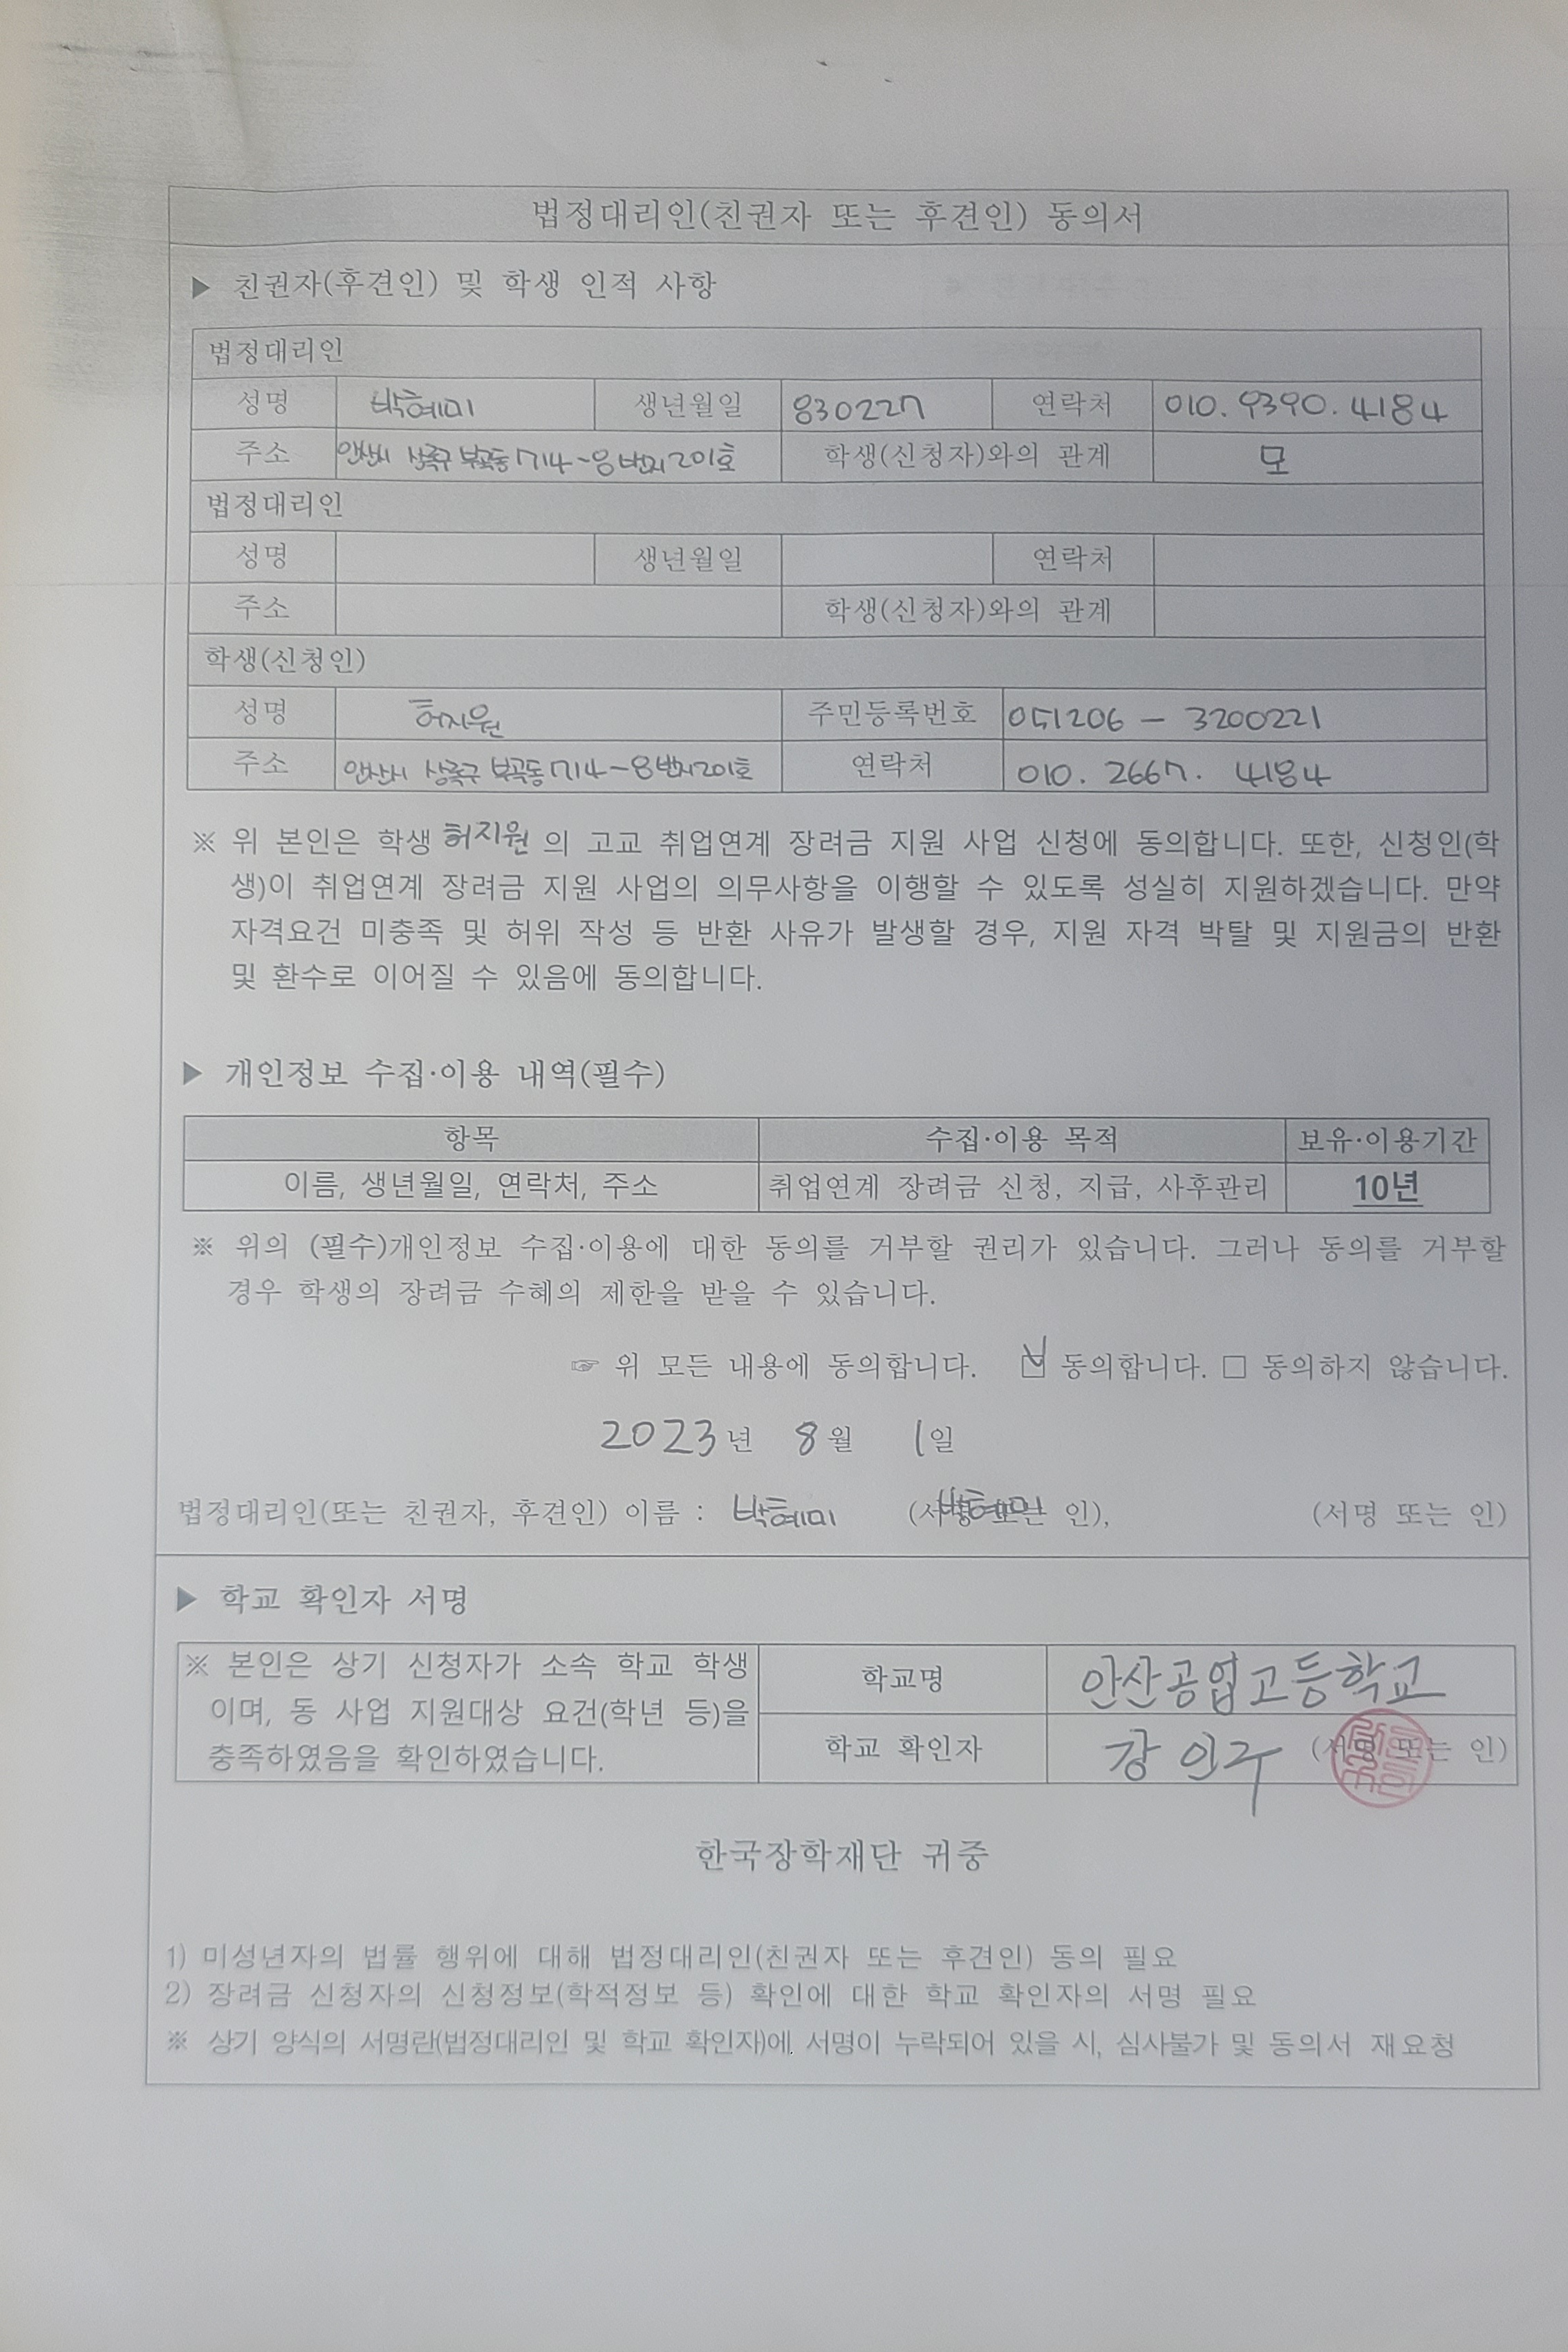 법정대리인(친권자 또는 후견인) 동의서
▶ 친권자(후견인) 및 학생 인적 사항
법정대리인
성명 박혜미 생년월일 830227 연락처 010. 9390. 4184
주소 안산시 상록구 부곡동 714-8번지 201호 학생(신청자)와의 관계 모
법정대리인
성명 생년월일 연락처
주소 학생(신청자)와의 관계
학생(신청인)
성명 허지원 주민등록번호 051206 - 3200221
주소 안산시 상록구 부곡동 714-8번지 201호 연락처 010. 2667. 4184
※ 위 본인은 학생 허지원 의 고교 취업연계 장려금 지원 사업 신청에 동의합니다. 또한, 신청인(학
생)이 취업연계 장려금 지원 사업의 의무사항을 이행할 수 있도록 성실히 지원하겠습니다. 만약
자격요건 미충족 및 허위 작성 등 반환 사유가 발생할 경우, 지원 자격 박탈 및 지원금의 반환
및 환수로 이어질 수 있음에 동의합니다.
▶ 개인정보 수집·이용 내역(필수)
항목 수집·이용 목적 보유·이용기간
이름, 생년월일, 연락처, 주소 취업연계 장려금 신청, 지급, 사후관리 10년
※ 위의 (필수)개인정보 수집·이용에 대한 동의를 거부할 권리가 있습니다. 그러나 동의를 거부할
경우 학생의 장려금 수혜의 제한을 받을 수 있습니다.
☞ 위 모든 내용에 동의합니다. ☑ 동의합니다. □ 동의하지 않습니다.
2023년 8월 1일
법정대리인(또는 친권자, 후견인) 이름 : 박혜미 (서명 또는 인), 박혜미 (서명 또는 인)
▶ 학교 확인자 서명
※ 본인은 상기 신청자가 소속 학교 학생
이며, 동 사업 지원대상 요건(학년 등)을
충족하였음을 확인하였습니다.
학교명 안산공업고등학교
학교 확인자 강인구 (서명 또는 인)
한국장학재단 귀중
1) 미성년자의 법률 행위에 대해 법정대리인(친권자 또는 후견인) 동의 필요
2) 장려금 신청자의 신청정보(학적정보 등) 확인에 대한 학교 확인자의 서명 필요
※ 상기 양식의 서명란(법정대리인 및 학교 확인자)에 서명이 누락되어 있을 시, 심사불가 및 동의서 재요청